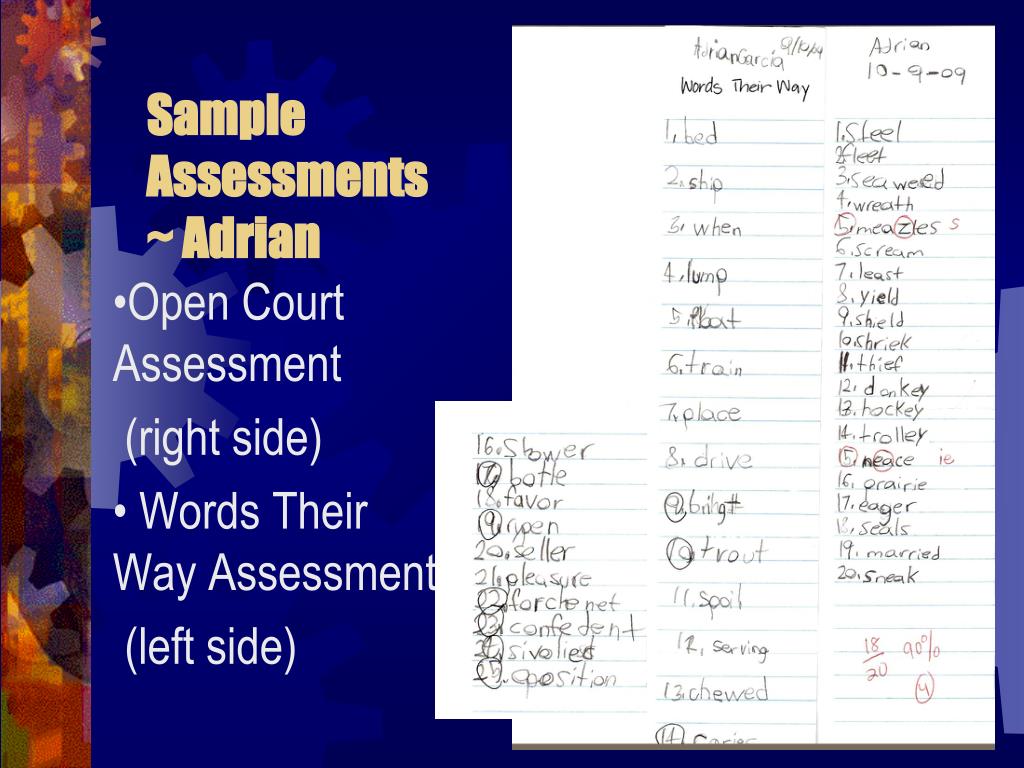 Sample
Assessments
~ Adrian
•Open Court
Assessment
(right side)
• Words Their
Way Assessment
(left side)
16. Slower
17. botle
18. favor
19. rypen
20. seller
21. pleasure
22. forchenet
23. confedent
24. sivalied
25. oposition
Adrian Garcia 9/10/09
Words Their Way
1. bed
2. ship
3. when
4. lump
5. float
6. train
7. place
8. drive
9. bright
10. trout
11. spoil
12. serving
13. chewed
14. carier
Adrian
10-9-09
1. Steel
2. fleet
3. seaweed
4. wreath
5. meazles s
6. scream
7. least
8. yield
9. shield
10. shriek
11. thief
12. donkey
13. hockey
14. trolley
15. neace ie
16. prairie
17. eager
18. seals
19. married
20. sneak
18/20 90%
4